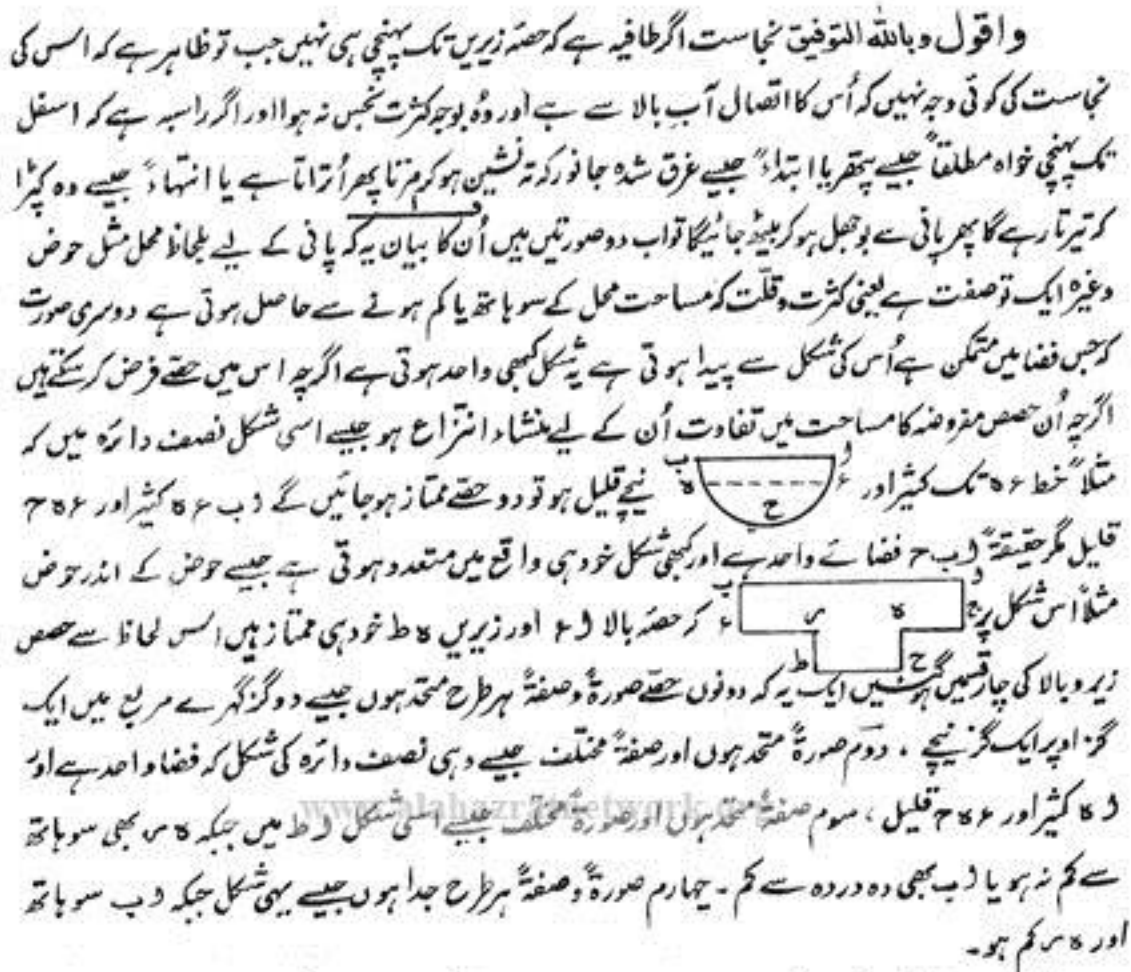 واقول وباللّٰه التوفیق نجاست اگر طافیہ ہے کہ حصّہ زیریں تک پہنچی ہی نہیں جب تو ظاہر ہے کہ اس کی
نجاست کی کوئی وجہ نہیں کہ اُس کا اتصال آبِ بالا سے ہے اور وُہ بوجہ کثرت نجس نہ ہوا اور اگر راسبہ ہے کہ اسفل
تک پہنچی خواہ مطلقاً جیسے پتھر یا ابتداءً جیسے غرق شدہ جانور کہ تہ نشین ہو کر مرتا پھر اُتراتا ہے یا انتہاءً جیسے وہ کپڑا
کہ تیرتا رہے گا پھر پانی سے بوجھل ہو کر بیٹھ جائیگا تو اب دو صورتیں ہیں اُن کا بیان یہ کہ پانی کے لیے بلحاظ محل مثل حوض
وغیرہ ایک تو صفت ہے یعنی کثرت و قلّت کہ مساحت محل کے سو ہاتھ یا کم ہونے سے حاصل ہوتی ہے دوسری صورت
کہ جس فضا میں متمکن ہے اُس کی شکل سے پیدا ہوتی ہے یہ شکل کبھی واحد ہوتی ہے اگرچہ اس میں حصّے فرض کر سکتے ہیں
اگرچہ اُن حصص مفروضہ کا مساحت میں تفاوت اُن کے لیے منشاء انتزاع ہو جیسے اسی شکل نصف دائرہ میں کہ
مثلاً خط ء ہ تک کثیر اور ا ب ء ہ ح نیچے قلیل ہو تو دو حصّے ممتاز ہو جائیں گے ا ب ء ہ کثیر اور ء ہ ح
قلیل مگر حقیقۃً ا ب ح فضائے واحد ہے اور کبھی شکل خود ہی واقع میں متعدد ہوتی ہے جیسے حوض کے اندر حوض
مثلاً اس شکل پر ا ب ج ء ہ ر ح ط کہ حصّہ بالا ا ء اور زیریں ہ ط خود ہی ممتاز ہیں اس لحاظ سے حصص
زیر و بالا کی چار قسمیں ہو گئیں ایک یہ کہ دونوں حصّے صورۃً وصفۃً ہر طرح متحد ہوں جیسے دو گز گہرے مربع میں ایک
گز اوپر ایک گز نیچے ، دوم صورۃً متحد ہوں اور صفۃً مختلف جیسے وہی نصف دائرہ کی شکل کہ فضا واحد ہے اور
ا ہ کثیر اور ء ہ ح قلیل ، سوم صفۃً متحد ہوں اور صورۃً مختلف جیسے اسی شکل ا ط میں جبکہ ہ ر بھی سو ہاتھ
سے کم نہ ہو یا ا ب بھی دہ در دہ سے کم ۔ چہارم صورۃً وصفۃً ہر طرح جدا ہوں جیسے یہی شکل جبکہ ا ب سو ہاتھ
اور ہ ر کم ہو۔
www.alahazratnetwork.org